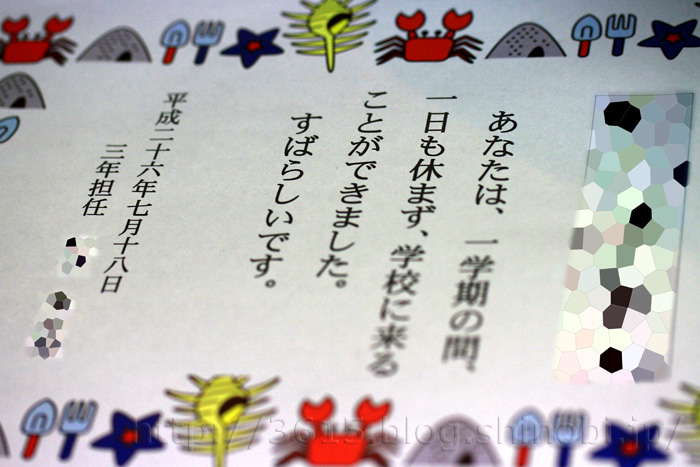 あなたは、一学期の間、
一日も休まず、学校に来る
ことができました。
すばらしいです。
平成二十六年七月十八日
三年担任
http://3615.blog.shinobi.jp/